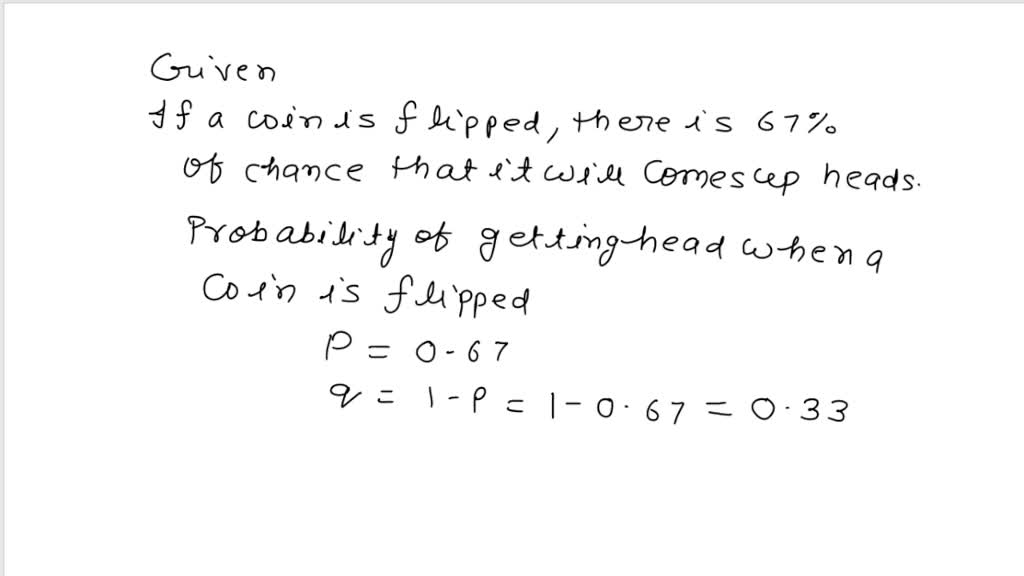 Given
If a coin is flipped, there is 67%
of chance that it will comes up heads.
Probability of getting head when a
Coin is flipped
P = 0.67
q = 1-P = 1-0.67 = 0.33